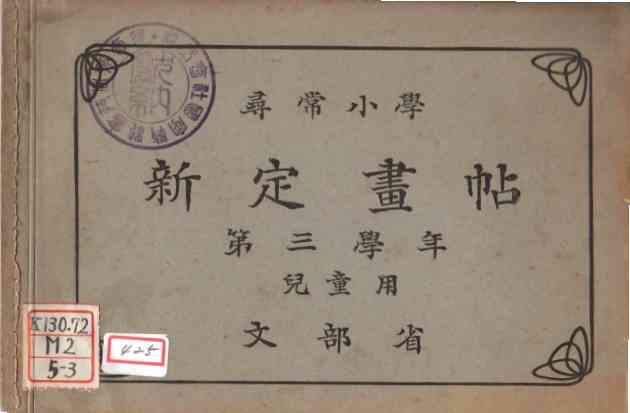 尋常小學
新定畫帖
第三學年
兒童用
文部省
K130.72
M2
5-3
425